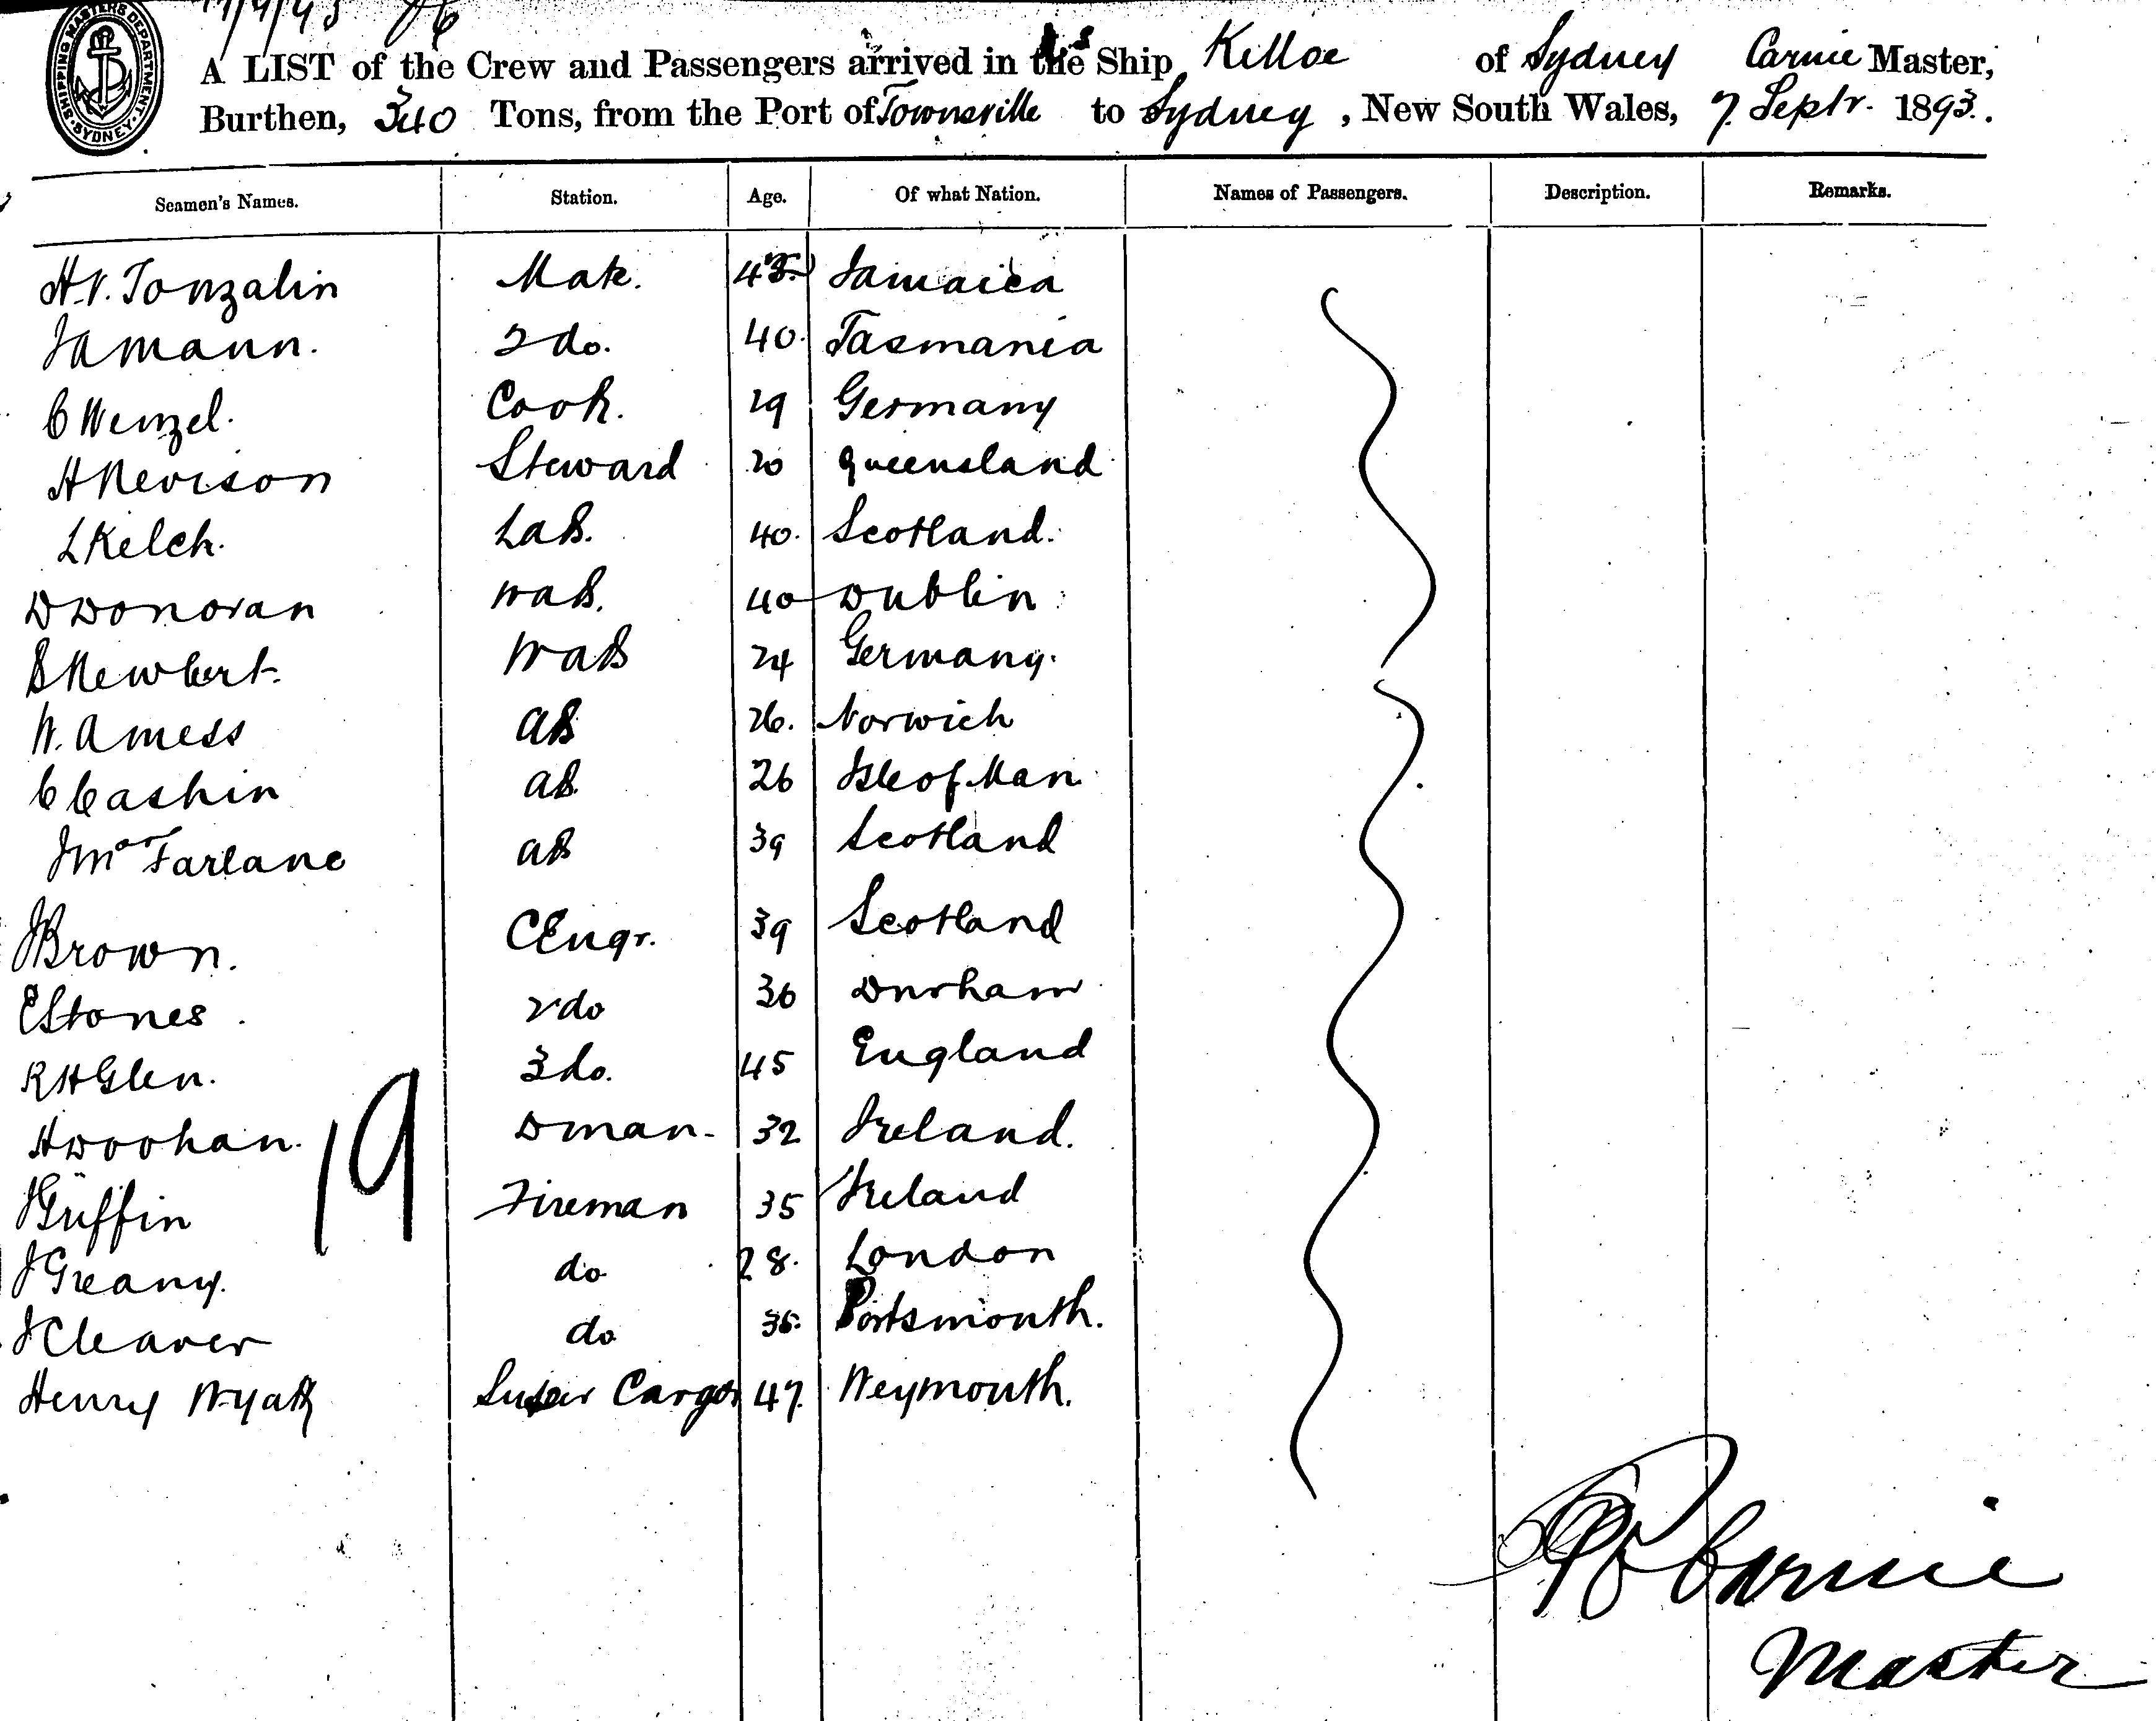 SHIPPING MASTERS DEPARTMENT · SYDNEY ·
A LIST of the Crew and Passengers arrived in the Ship Killoe of Sydney Carnie Master,
Burthen, 340 Tons, from the Port of Townsville to Sydney, New South Wales, 7. Septr. 1893.
Seamen's Names. Station. Age. Of what Nation. Names of Passengers. Description. Remarks.
H.V. Tonzalin Mate. Jamaica
JAMann. 2 do. 40. Tasmania
C Wenzel. Cook. 29 Germany
H Nevison Steward 20 Queensland
L Kelch. LaB. 40. Scotland.
D Donovan 40 Dublin
S Newbert. 24 Germany.
W. Amess aB 26. Norwich
C Cashin aB 26 Isle of Man
J McFarlane aB 39 Scotland
J Brown. C Engr. 39 Scotland
E Stones. 2 do 36 Durham
R H Glen. 3 do. 45 England
H Doohan. D man. 32 Ireland.
J Griffin Fireman 35 Ireland
J Greany. do 28. London
J Cleaver do 36. Portsmouth.
Henry Wyatt Super Cargo 47. Weymouth.
19
Carnie
Master